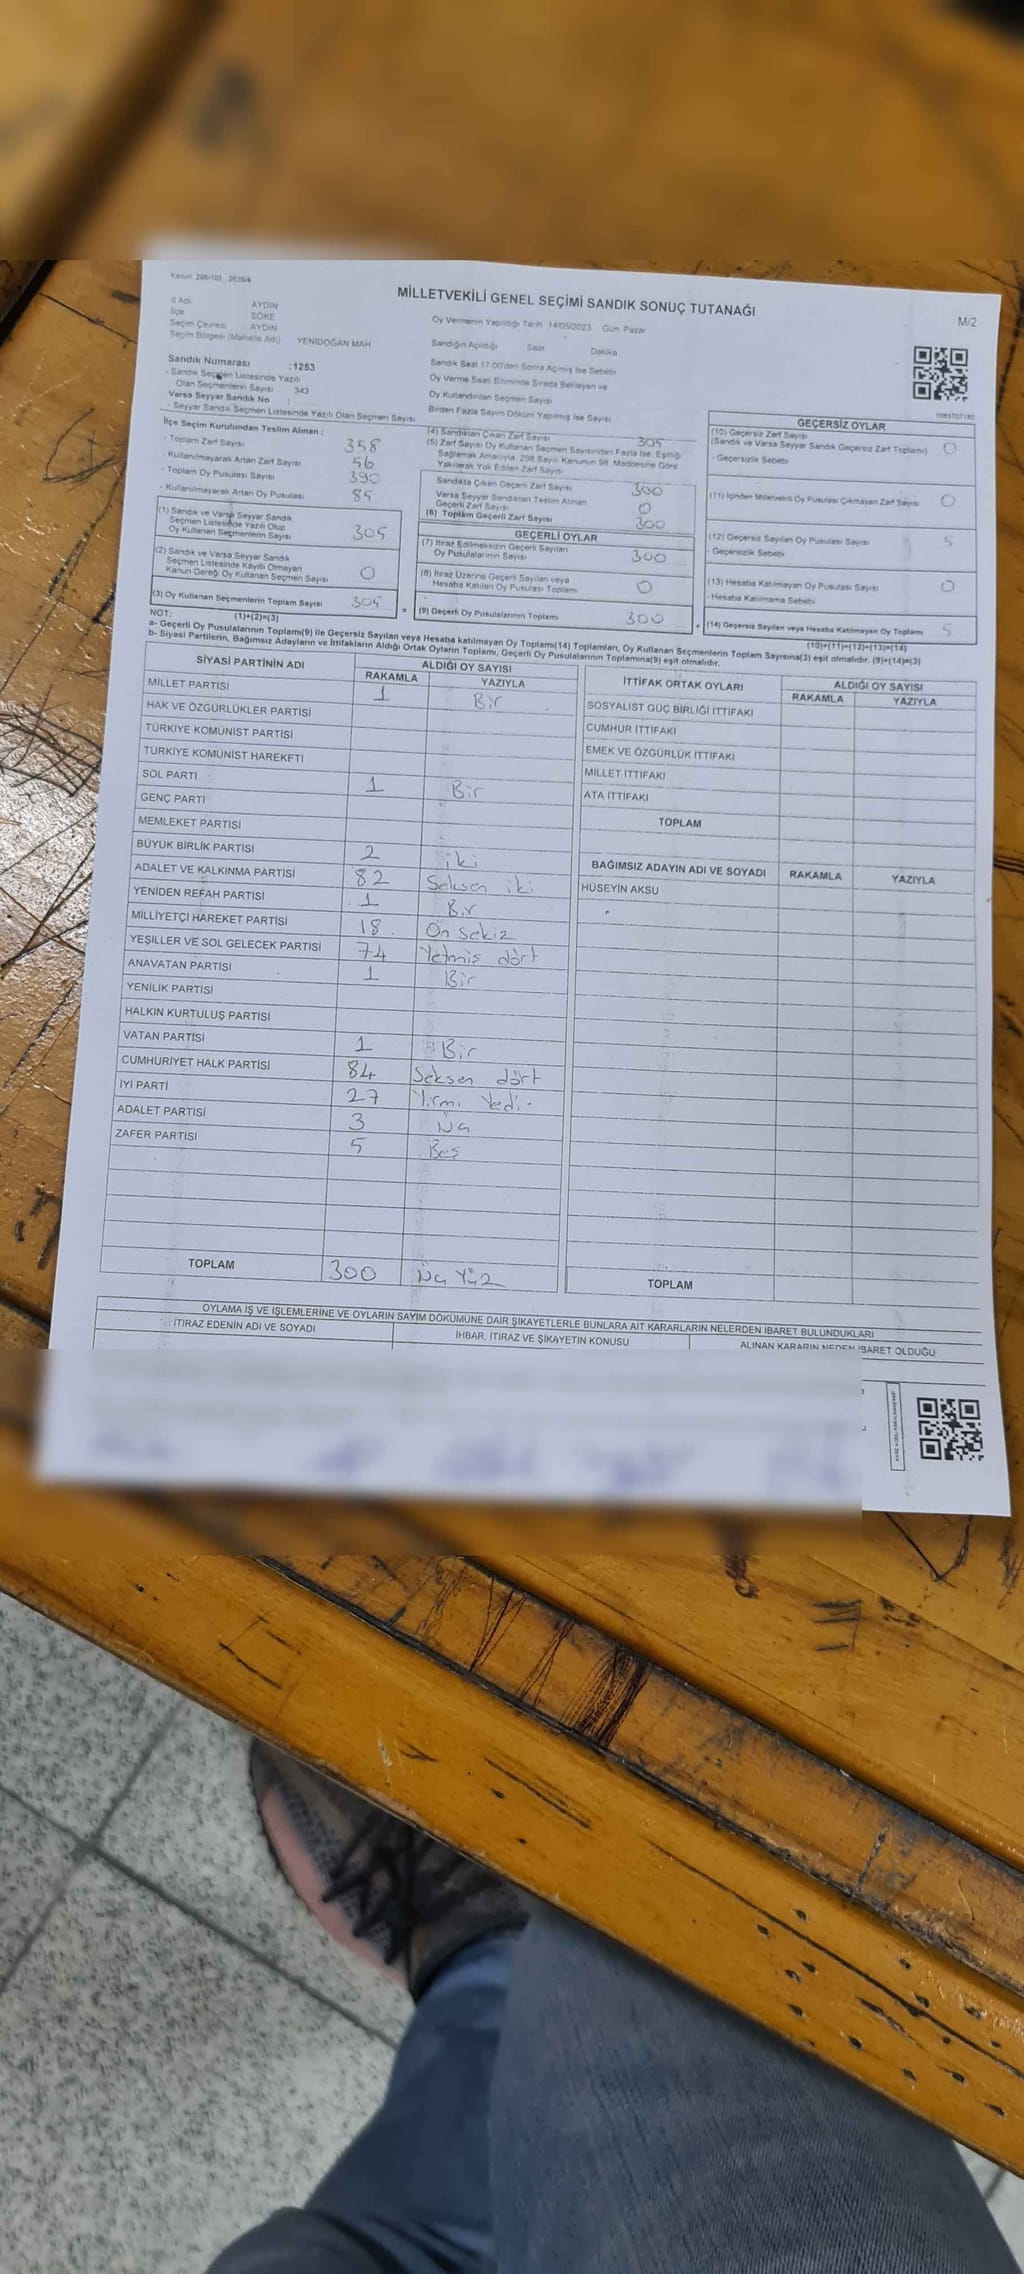 Kanun 298/105 2839/4
MİLLETVEKİLİ GENEL SEÇİMİ SANDIK SONUÇ TUTANAĞI
M/2
İl Adı AYDIN
İlçe SÖKE
Seçim Çevresi AYDIN
Seçim Bölgesi (Mahalle Adı) YENİDOĞAN MAH
Oy Vermenin Yapıldığı Tarih 14/05/2023 Gün Pazar
Sandığın Açıldığı Saat Dakika
Sandık Saat 17:00'den Sonra Açımış İse Sebebi
Oy Verme Saati Bitiminde Sırada Bekleyen ve
Oy Kullandırılan Seçmen Sayısı
Birden Fazla Sayım Döküm Yapılmış İse Sayısı
Sandık Numarası :1253
- Sandık Seçmen Listesinde Yazılı
Olan Seçmenlerin Sayısı 343
Varsa Seyyar Sandık No :
- Seyyar Sandık Seçmen Listesinde Yazılı Olan Seçmen Sayısı
İlçe Seçim Kurulundan Teslim Alınan :
- Toplam Zarf Sayısı 358
- Kullanılmayarak Artan Zarf Sayısı 56
- Toplam Oy Pusulası Sayısı 390
- Kullanılmayarak Artan Oy Pusulası 85
(1) Sandık ve Varsa Seyyar Sandık
Seçmen Listesinde Yazılı Olup
Oy Kullanan Seçmenlerin Sayısı 305
(2) Sandık ve Varsa Seyyar Sandık
Seçmen Listesinde Kayıtlı Olmayan
Kanun Gereği Oy Kullanan Seçmen Sayısı 0
(3) Oy Kullanan Seçmenlerin Toplam Sayısı 305
(1)+(2)=(3)
(4) Sandıktan Çıkan Zarf Sayısı 305
(5) Zarf Sayısı Oy Kullanan Seçmen Sayısından Fazla İse, Eşitliği
Sağlamak Amacıyla 298 Sayılı Kanunun 98. Maddesine Göre
Yakılarak Yok Edilen Zarf Sayısı
Sandıkta Çıkan Geçerli Zarf Sayısı 300
Varsa Seyyar Sandıktan Teslim Alınan
Geçerli Zarf Sayısı 0
(6) Toplam Geçerli Zarf Sayısı 300
GEÇERLİ OYLAR
(7) İtiraz Edilmeksizin Geçerli Sayılan
Oy Pusulalarının Sayısı 300
(8) İtiraz Üzerine Geçerli Sayılan veya
Hesaba Katılan Oy Pusulası Toplamı 0
= (9) Geçerli Oy Pusulalarının Toplamı 300 +
1083757180
GEÇERSİZ OYLAR
(10) Geçersiz Zarf Sayısı
(Sandık ve Varsa Seyyar Sandık Geçersiz Zarf Toplamı) 0
- Geçersizlik Sebebi
(11) İçinden Milletvekili Oy Pusulası Çıkmayan Zarf Sayısı 0
(12) Geçersiz Sayılan Oy Pusulası Sayısı 5
- Geçersizlik Sebebi
(13) Hesaba Katılmayan Oy Pusulası Sayısı 0
- Hesaba Katılmama Sebebi
(14) Geçersiz Sayılan veya Hesaba Katılmayan Oy Toplamı 5
(10)+(11)+(12)+(13)=(14)
NOT:
a- Geçerli Oy Pusulalarının Toplamı(9) ile Geçersiz Sayılan veya Hesaba katılmayan Oy Toplamı(14) Toplamları, Oy Kullanan Seçmenlerin Toplam Sayısına(3) eşit olmalıdır. (9)+(14)=(3)
b- Siyasi Partilerin, Bağımsız Adayların ve İttifakların Aldığı Ortak Oyların Toplamı, Geçerli Oy Pusulalarının Toplamına(9) eşit olmalıdır.
SİYASİ PARTİNİN ADI ALDIĞI OY SAYISI
RAKAMLA YAZIYLA
MİLLET PARTİSİ 1 Bir
HAK VE ÖZGÜRLÜKLER PARTİSİ
TÜRKİYE KOMÜNİST PARTİSİ
TÜRKİYE KOMÜNİST HAREKETİ
SOL PARTİ 1 Bir
GENÇ PARTİ
MEMLEKET PARTİSİ
BÜYÜK BİRLİK PARTİSİ 2 iki
ADALET VE KALKINMA PARTİSİ 82 Seksen iki
YENİDEN REFAH PARTİSİ 1 Bir
MİLLİYETÇİ HAREKET PARTİSİ 18 On sekiz
YEŞİLLER VE SOL GELECEK PARTİSİ 74 Yetmiş dört
ANAVATAN PARTİSİ 1 Bir
YENİLİK PARTİSİ
HALKIN KURTULUŞ PARTİSİ
VATAN PARTİSİ 1 Bir
CUMHURİYET HALK PARTİSİ 84 Seksen dört
İYİ PARTİ 27 Yirmi Yedi
ADALET PARTİSİ 3 Üç
ZAFER PARTİSİ 5 Beş
TOPLAM 300 Üç Yüz
İTTİFAK ORTAK OYLARI ALDIĞI OY SAYISI
RAKAMLA YAZIYLA
SOSYALİST GÜÇ BİRLİĞİ İTTİFAKI
CUMHUR İTTİFAKI
EMEK VE ÖZGÜRLÜK İTTİFAKI
MİLLET İTTİFAKI
ATA İTTİFAKI
TOPLAM
BAĞIMSIZ ADAYIN ADI VE SOYADI RAKAMLA YAZIYLA
HÜSEYİN AKSU
TOPLAM
OYLAMA İŞ VE İŞLEMLERİNE VE OYLARIN SAYIM DÖKÜMÜNE DAİR ŞİKAYETLERLE BUNLARA AİT KARARLARIN NELERDEN İBARET BULUNDUKLARI
İTİRAZ EDENİN ADI VE SOYADI İHBAR, İTİRAZ VE ŞİKAYETİN KONUSU ALINAN KARARIN NEDEN İBARET OLDUĞU